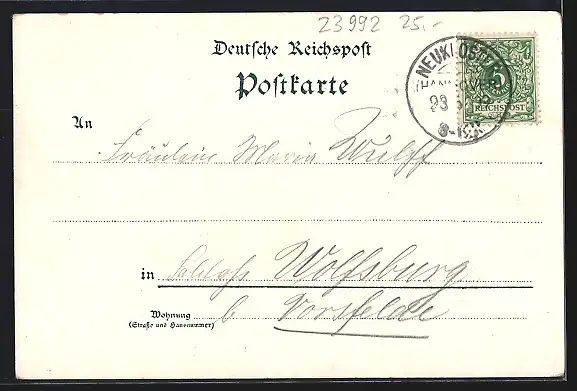 23992 25.-
Deutsche Reichspost
Postkarte
NEUKLOSTER
(HANNOVER)
5
REICHSPOST
An
Fräulein Maria Wulff
in Schloss Wolfsburg
Wohnung
(Straße und Hausnummer)
b Vorsfelde